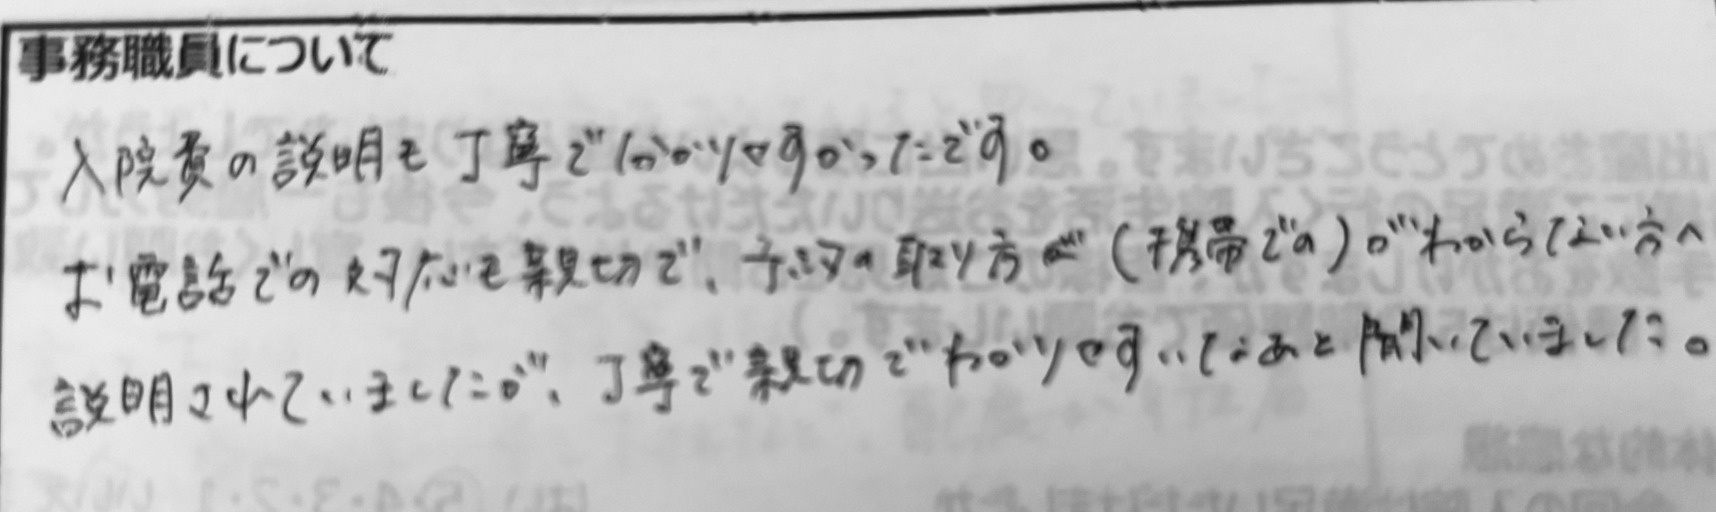 事務職員について
入院費の説明も丁寧でわかりやすかったです。
お電話での対応も親切で、予約の取り方が(携帯での)がわからない方へ
説明されていましたが、丁寧で親切でわかりやすいなあと聞いていました。